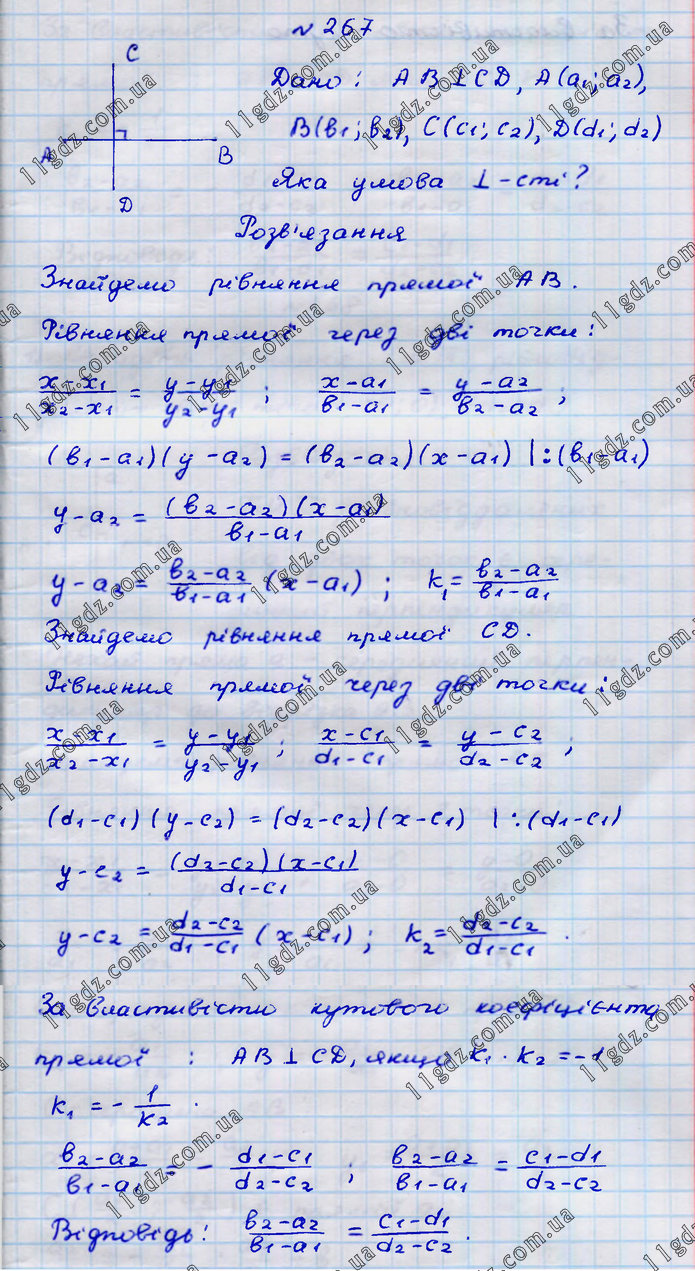 № 267
C
A B
D
Дано: AB ⊥ CD, A(a1; a2),
B(b1; b2), C(c1; c2), D(d1; d2)
Яка умова ⊥-сті?
Розв'язання
Знайдемо рівняння прямої AB.
Рівняння прямої через дві точки:
(x - x1)/(x2 - x1) = (y - y1)/(y2 - y1) ; (x - a1)/(b1 - a1) = (y - a2)/(b2 - a2) ;
(b1 - a1)(y - a2) = (b2 - a2)(x - a1) | : (b1 - a1)
y - a2 = (b2 - a2)(x - a1)/(b1 - a1)
y - a2 = (b2 - a2)/(b1 - a1) (x - a1) ; k1 = (b2 - a2)/(b1 - a1)
Знайдемо рівняння прямої CD.
Рівняння прямої через дві точки:
(x - x1)/(x2 - x1) = (y - y1)/(y2 - y1) ; (x - c1)/(d1 - c1) = (y - c2)/(d2 - c2) ;
(d1 - c1)(y - c2) = (d2 - c2)(x - c1) | : (d1 - c1)
y - c2 = (d2 - c2)(x - c1)/(d1 - c1)
y - c2 = (d2 - c2)/(d1 - c1) (x - c1) ; k2 = (d2 - c2)/(d1 - c1) .
За властивістю кутового коефіцієнта
прямої : AB ⊥ CD, якщо k1 · k2 = -1
k1 = - 1/k2 .
(b2 - a2)/(b1 - a1) = - (d1 - c1)/(d2 - c2) ; (b2 - a2)/(b1 - a1) = (c1 - d1)/(d2 - c2)
Відповідь: (b2 - a2)/(b1 - a1) = (c1 - d1)/(d2 - c2) .
11gdz.com.ua